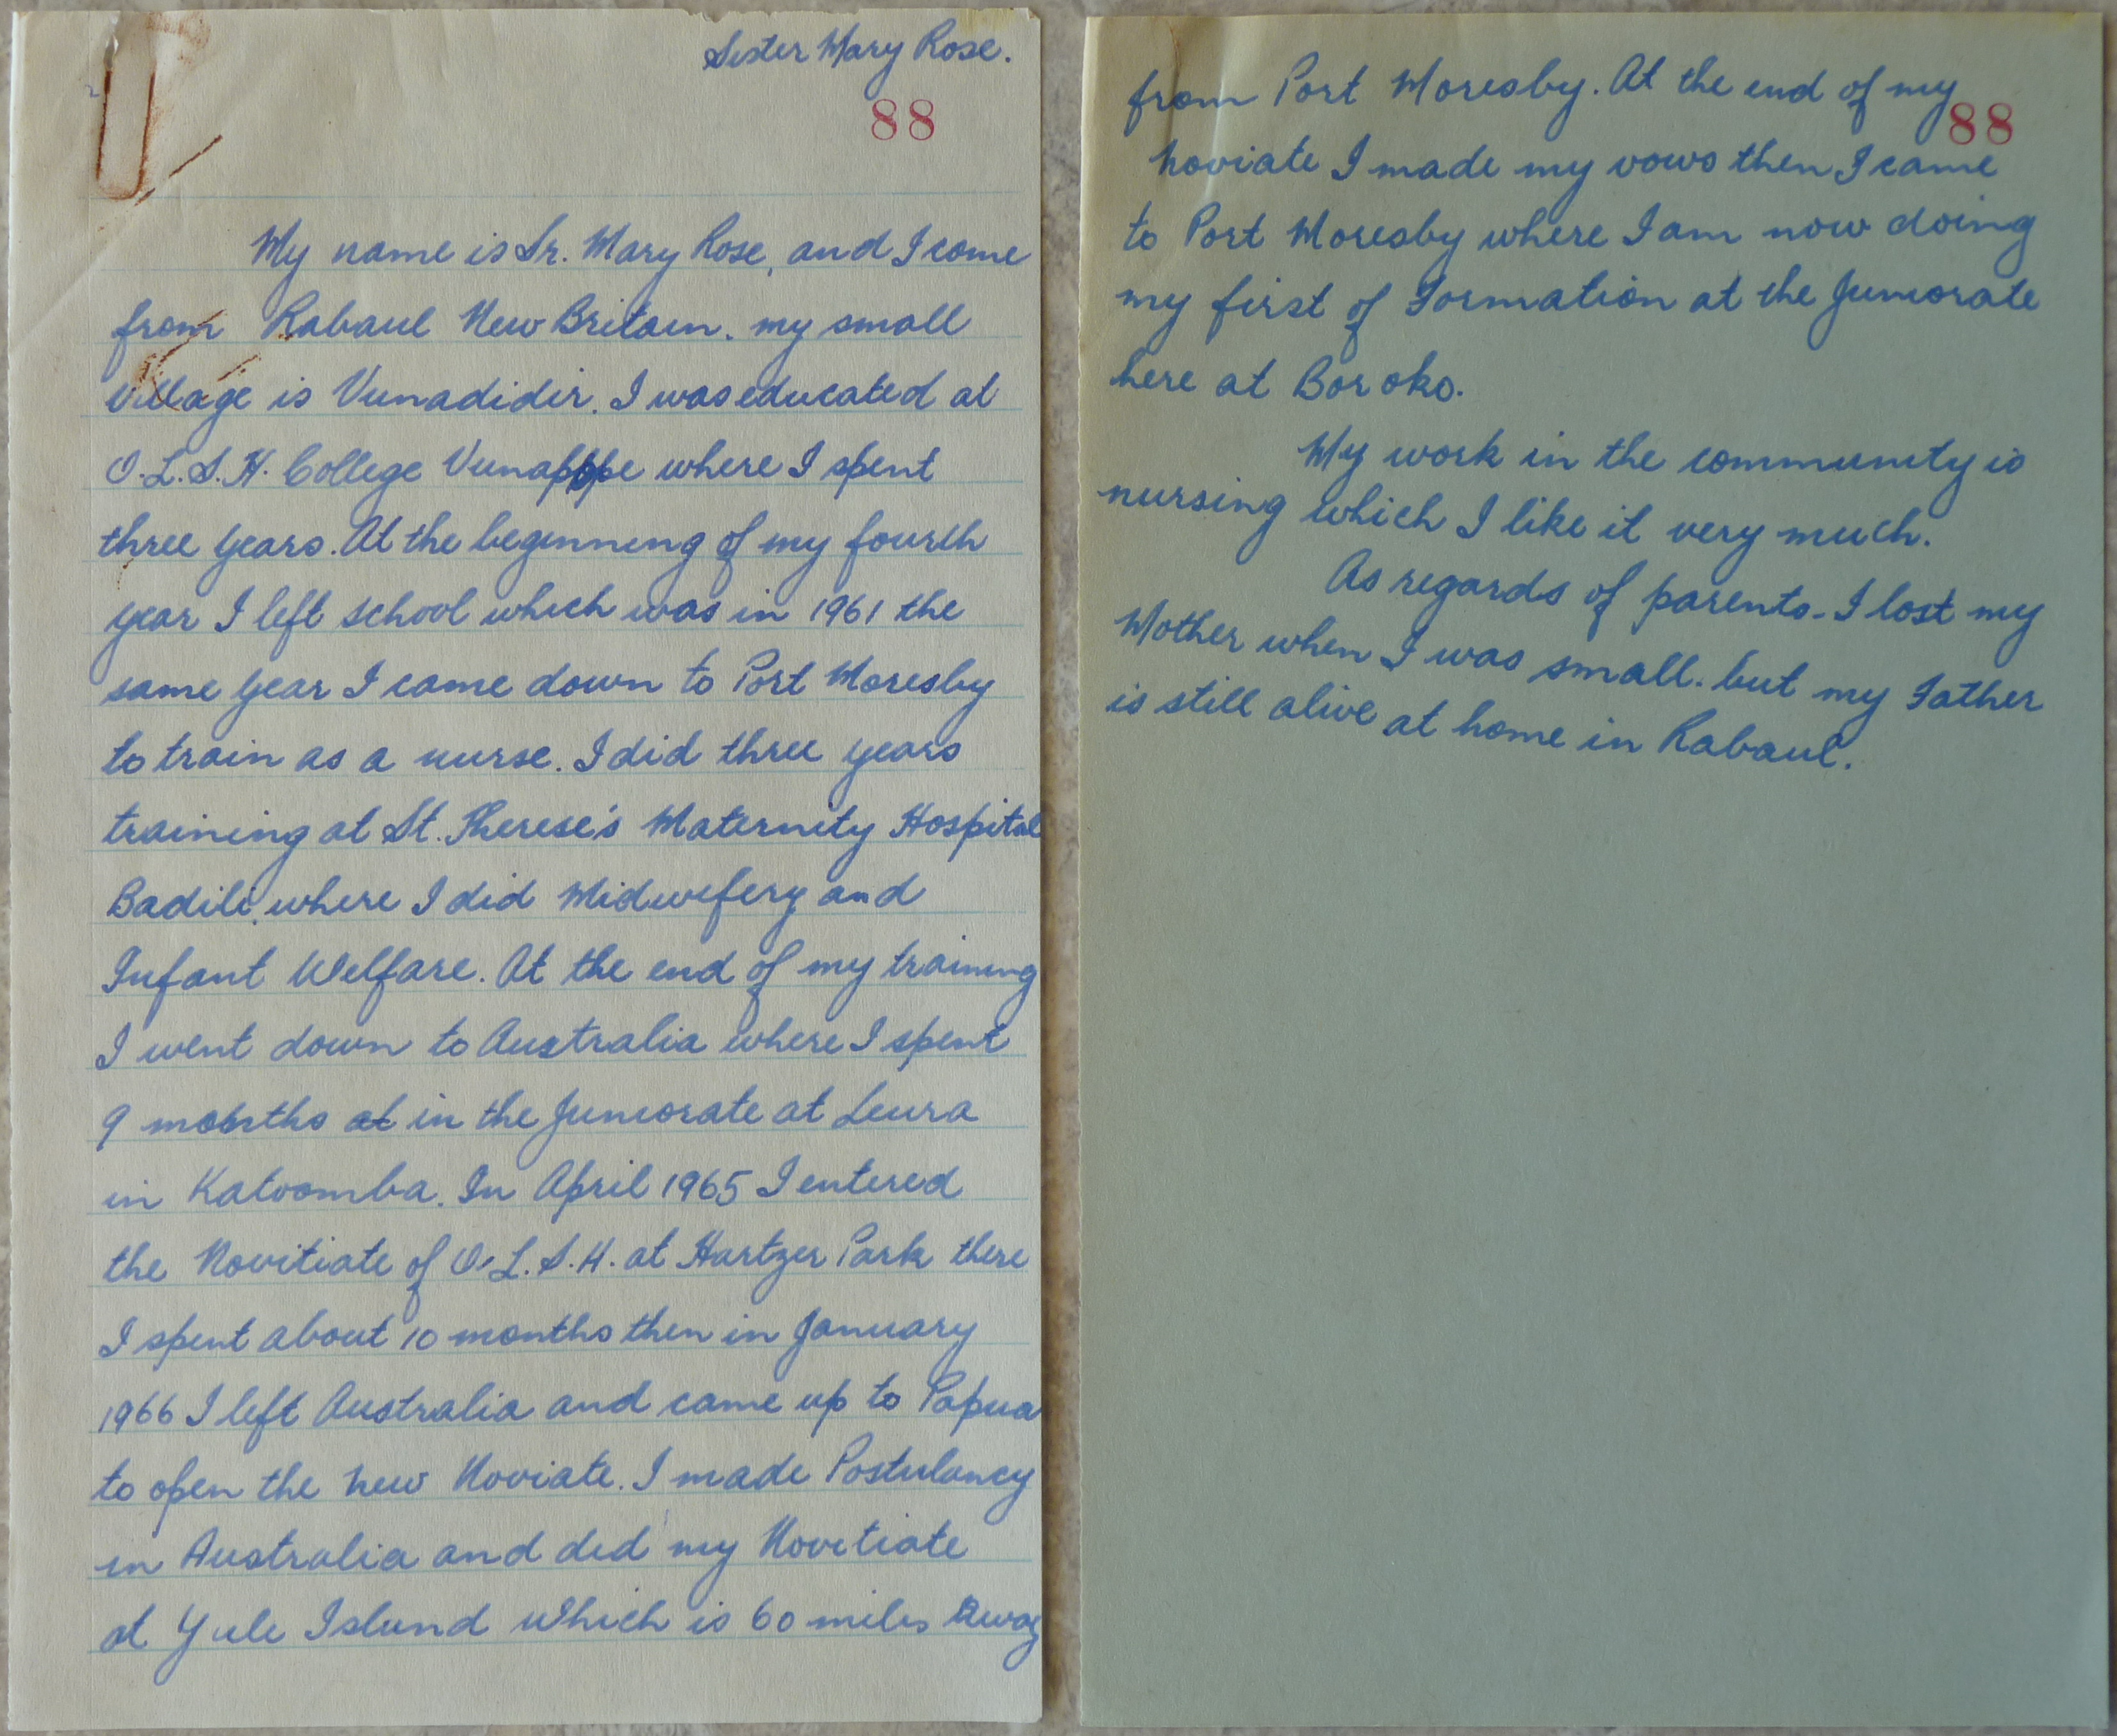 Sister Mary Rose.
88
My name is Sr. Mary Rose, and I come
from Rabaul New Britain. my small
village is Vunadidir. I was educated at
O.L.S.H. College Vunapope where I spent
three years. At the beginning of my fourth
year I left school which was in 1961 the
same year I came down to Port Moresby
to train as a nurse. I did three years
training at St. Therese's Maternity Hospital
Badili, where I did Midwifery and
Infant Welfare. At the end of my training
I went down to Australia where I spent
9 months at in the Juniorate at Leura
in Katoomba. In April 1965 I entered
the Novitiate of O.L.S.H. at Hartzer Park there
I spent about 10 months then in January
1966 I left Australia and came up to Papua
to open the new Noviate. I made Postulancy
in Australia and did my Novitiate
at Yule Island which is 60 miles away
from Port Moresby. At the end of my
88
noviate I made my vows then I came
to Port Moresby where I am now doing
my first of Formation at the Juniorate
here at Boroko.
My work in the community is
nursing which I like it very much.
As regards of parents - I lost my
Mother when I was small. but my Father
is still alive at home in Rabaul.